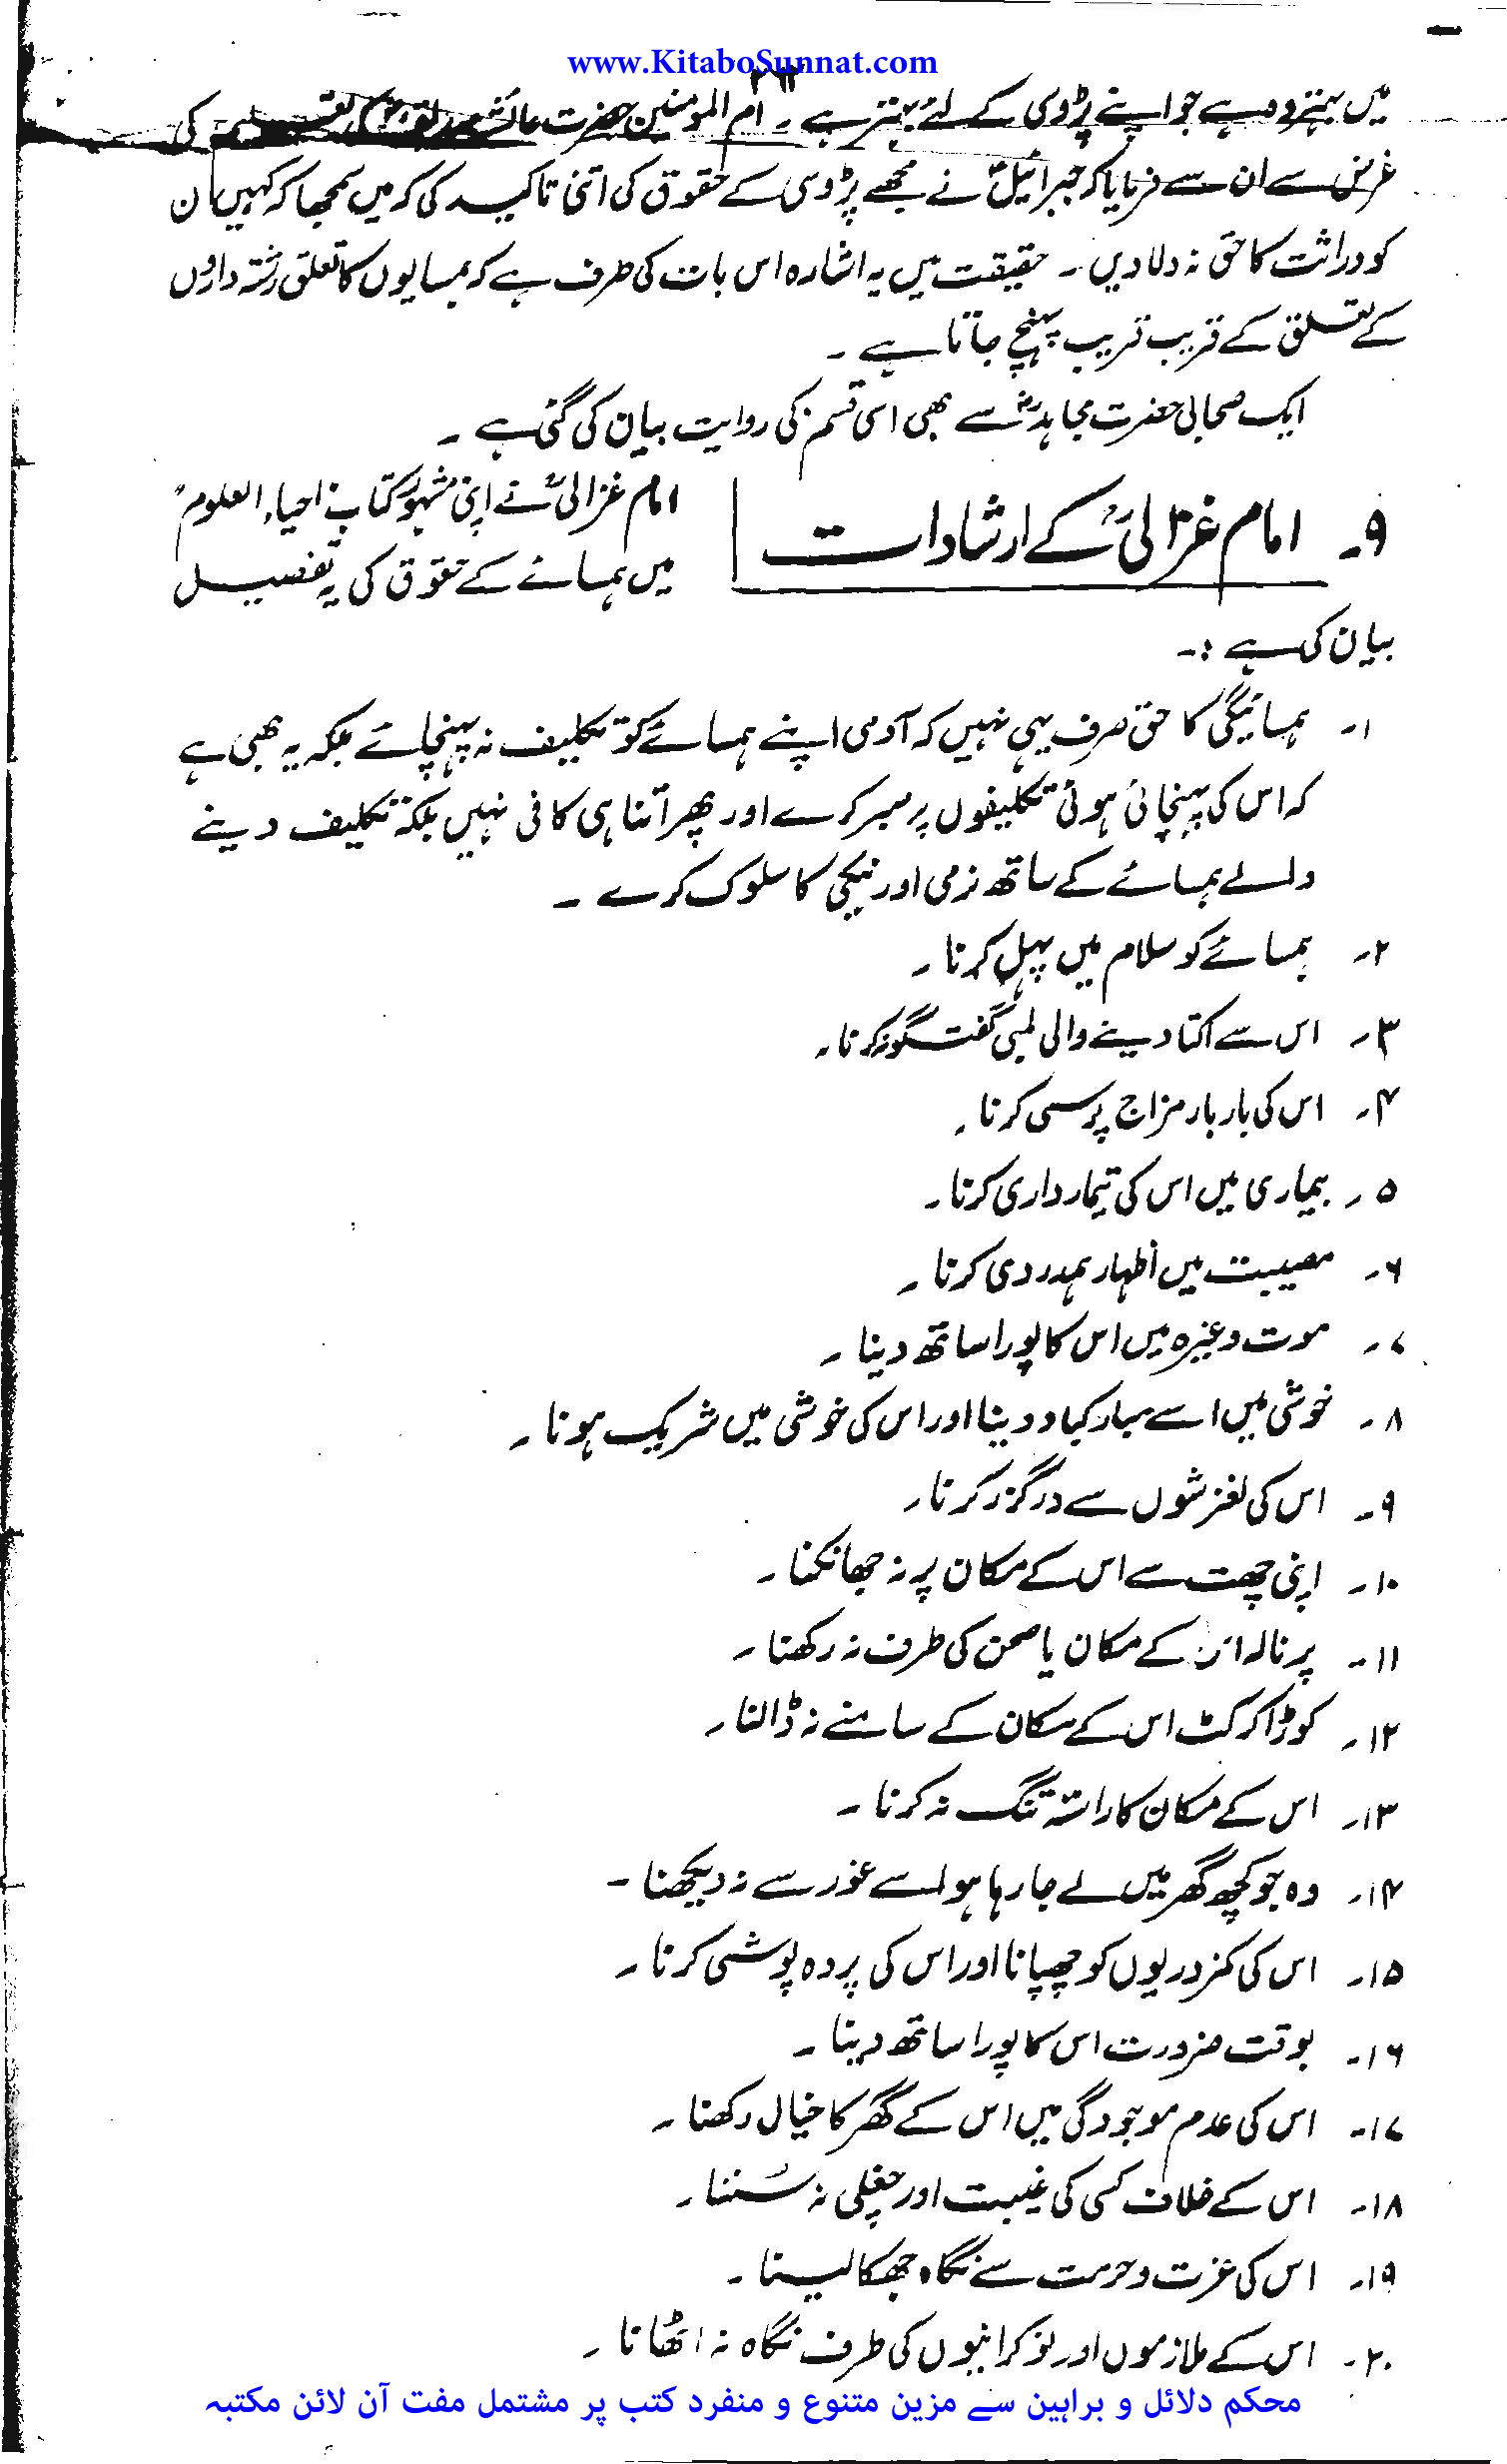 www.KitaboSunnat.com
۳۶۲
میں بہتر وہ ہے جو اپنے پڑوسی کے لئے بہتر ہے ۔ ام المومنین حضرت عائشہ صدیقہؓ کو تعلیم کی
غرض سے ان سے فرمایا کہ جبرائیلؑ نے مجھے پڑوسی کے حقوق کی اتنی تاکید کی کہ میں سمجھا کہ کہیں ان
کو وراثت کا حق نہ دلا دیں ۔ حقیقت میں یہ اشارہ اس بات کی طرف ہے کہ ہمسایوں کا تعلق رشتہ داروں
کے تعلق کے قریب قریب پہنچ جاتا ہے ۔
ایک صحابی حضرت مجاہدؓ سے بھی اسی قسم کی روایت بیان کی گئی ہے ۔
۹۔ امام غزالیؒ کے ارشادات
امام غزالیؒ نے اپنی مشہور کتاب "احیاء العلوم"
میں ہمسائے کے حقوق کی یہ تفصیل
بیان کی ہے :۔
۱۔ ہمسائیگی کا حق صرف یہی نہیں کہ آدمی اپنے ہمسائے کو تکلیف نہ پہنچائے بلکہ یہ بھی ہے
کہ اس کی پہنچائی ہوئی تکلیفوں پر صبر کرے اور پھر اتنا ہی کافی نہیں بلکہ تکلیف دینے
والے ہمسائے کے ساتھ نرمی اور نیکی کا سلوک کرے ۔
۲۔ ہمسائے کو سلام میں پہل کرنا ۔
۳۔ اس سے اکتا دینے والی لمبی گفتگو نہ کرنا ۔
۴۔ اس کی بار بار مزاج پرسی کرنا ۔
۵۔ بیماری میں اس کی تیمارداری کرنا ۔
۶۔ مصیبت میں اظہار ہمدردی کرنا ۔
۷۔ موت وغیرہ میں اس کا پورا ساتھ دینا ۔
۸۔ خوشی میں اسے مبارکباد دینا اور اس کی خوشی میں شریک ہونا ۔
۹۔ اس کی لغزشوں سے درگزر کرنا ۔
۱۰۔ اپنی چھت سے اس کے مکان پر نہ جھانکنا ۔
۱۱۔ پرنالہ اس کے مکان یا صحن کی طرف نہ رکھنا ۔
۱۲۔ کوڑا کرکٹ اس کے مکان کے سامنے نہ ڈالنا ۔
۱۳۔ اس کے مکان کا راستہ تنگ نہ کرنا ۔
۱۴۔ وہ جو کچھ گھر میں لے جا رہا ہو اسے غور سے نہ دیکھنا ۔
۱۵۔ اس کی کمزوریوں کو چھپانا اور اس کی پردہ پوشی کرنا ۔
۱۶۔ بوقت ضرورت اس کا پورا ساتھ دینا ۔
۱۷۔ اس کی عدم موجودگی میں اس کے گھر کا خیال رکھنا ۔
۱۸۔ اس کے خلاف کسی کی غیبت اور چغلی نہ سُننا ۔
۱۹۔ اس کی عزت و حرمت سے نگاہ جھکا لینا ۔
۲۰۔ اس کے ملازموں اور نوکرانیوں کی طرف نگاہ نہ اٹھانا ۔
محکم دلائل و براہین سے مزین متنوع و منفرد کتب پر مشتمل مفت آن لائن مکتبہ